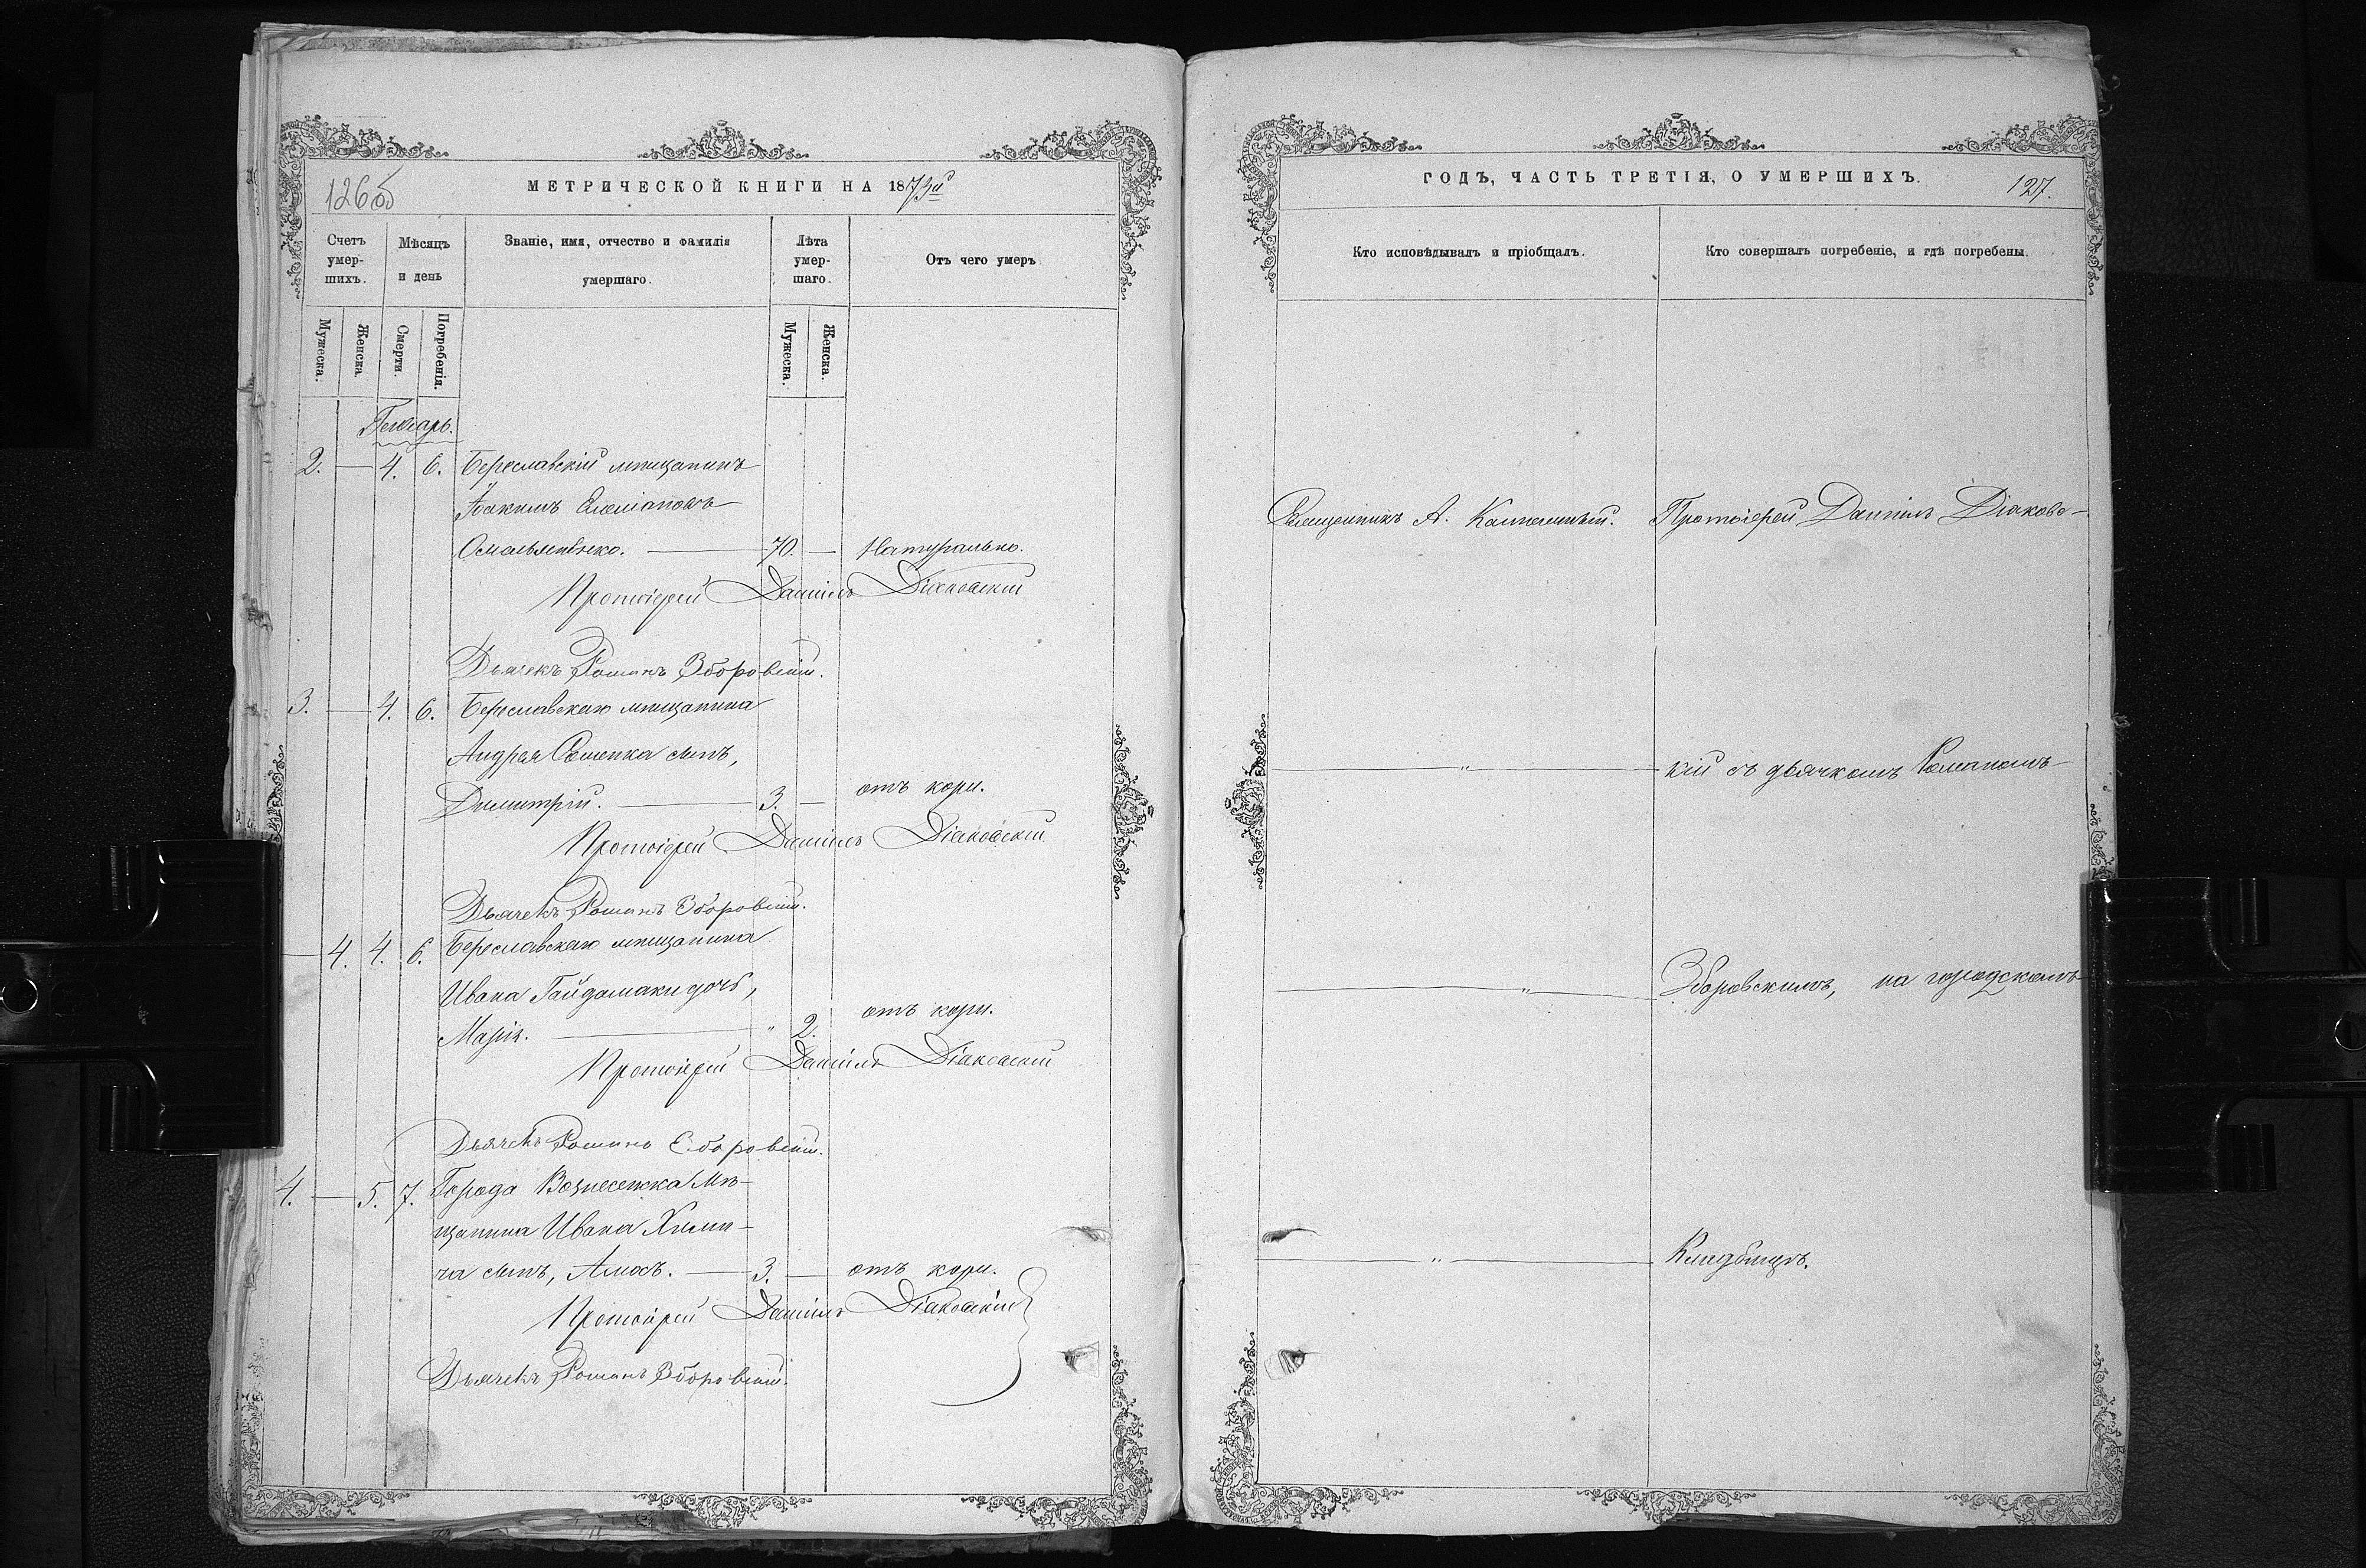 126об
МЕТРИЧЕСКОЙ КНИГИ НА 1873й
Счетъ умер-шихъ.
Мѣсяцъ и день
Званіе, имя, отчество и фамилія умершаго.
Лѣта умер-шаго.
Отъ чего умеръ
Мужеска.
Женска.
Смерти.
Погребенія.
Мужеска.
Женска.
Генварь.
2. — 4. 6. Береславскій мѣщанинъ
Іоакимъ
70. — Натурально.
Протоіерей Даніилъ Діаковскій
Дьячекъ Романъ Зборовскій.
3. — 4. 6. Береславскаго мѣщанина
Андрея Семенка сынъ,
Димитрій. — 3. — отъ кори.
Протоіерей Даніилъ Діаковскій
Дьячекъ Романъ Зборовскій.
— 4. 4. 6. Береславскаго мѣщанина
Ивана Гайдамаки дочь,
Марія. — " 2. отъ кори.
Протоіерей Даніилъ Діаковскій
Дьячекъ Романъ Зборовскій.
4. — 5. 7. Города Вознесенска Мѣ-
щанина Ивана Хими-
ча сынъ, Амосъ. — 3. — отъ кори.
Протоіерей Даніилъ Діаковскій
Дьячекъ Романъ Зборовскій.
ГОДЪ, ЧАСТЬ ТРЕТІЯ, О УМЕРШИХЪ.
127.
Кто исповѣдывалъ и пріобщалъ.
Кто совершалъ погребеніе, и гдѣ погребены.
Священникъ А. Протоіерей Даніилъ Діаковс-
— " — кій съ дьячкомъ Романомъ
— " — Зборовскимъ, на городскомъ
— " — Кладбищѣ.